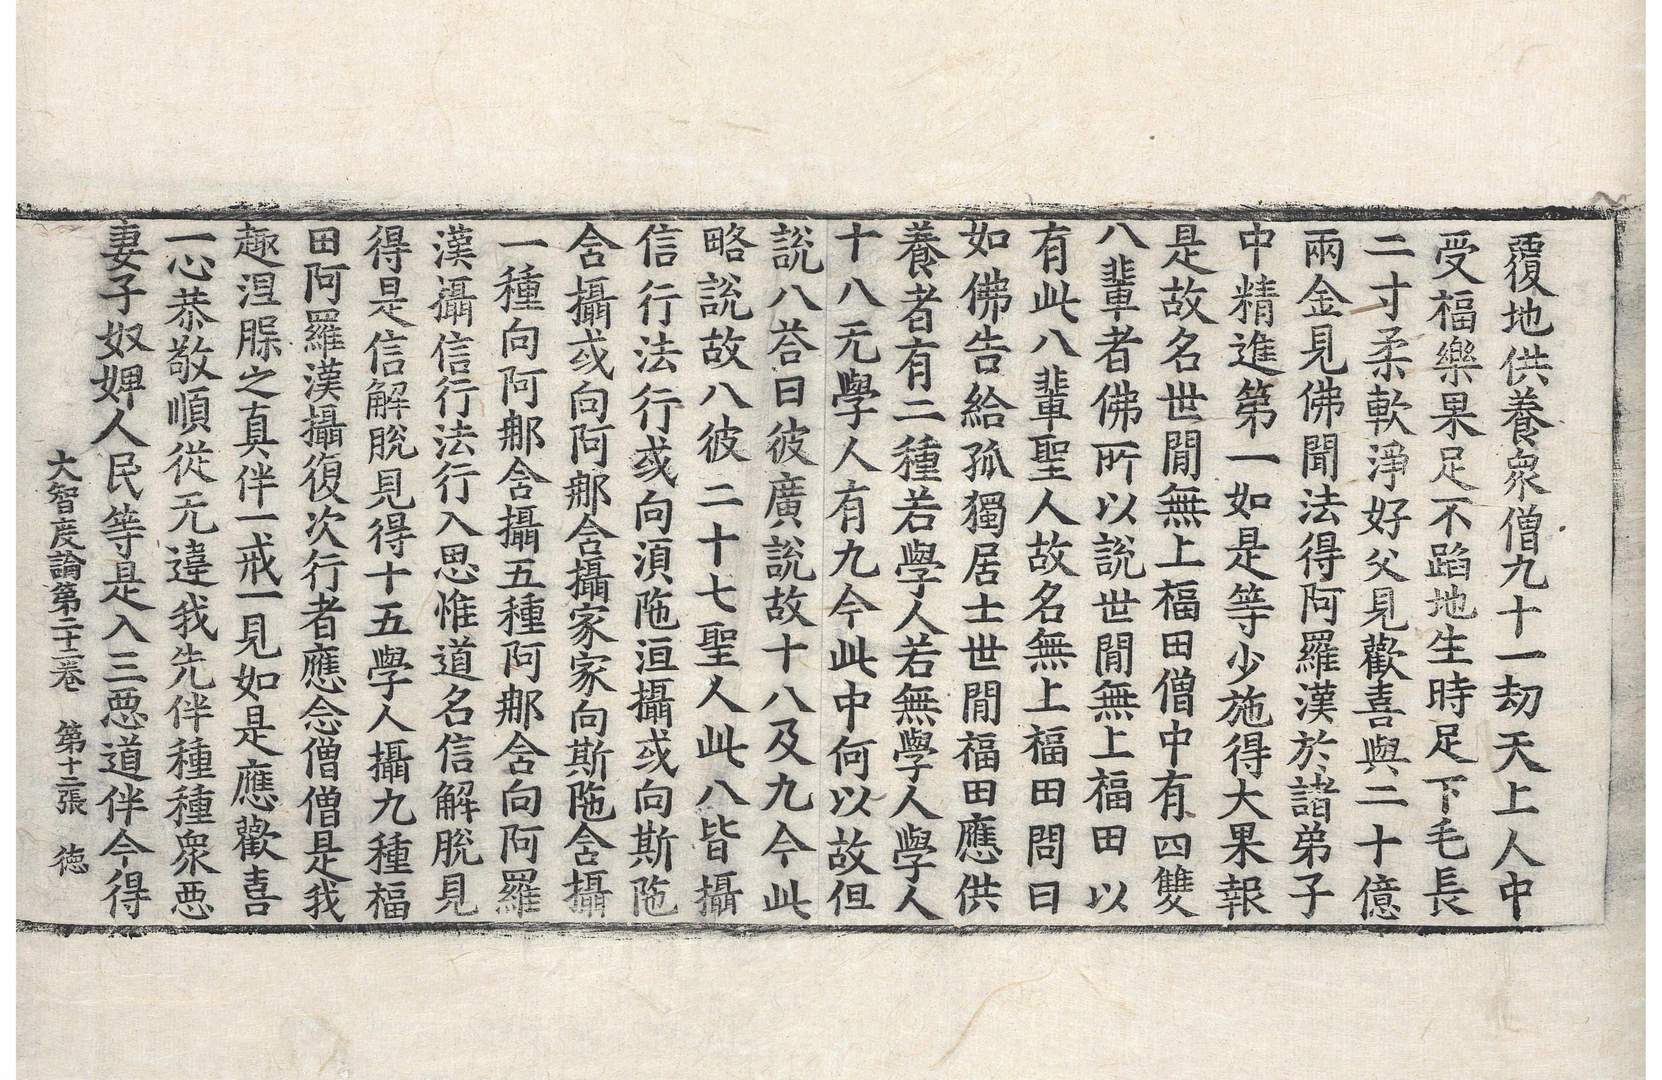 覆地供養衆僧九十一劫天上人中
受福樂果足不蹈地生時足下毛長
二寸柔軟淨好父見歡喜與二十億
兩金見佛聞法得阿羅漢於諸弟子
中精進第一如是等少施得大果報
是故名世閒無上福田僧中有四雙
八輩者佛所以說世閒無上福田以
有此八輩聖人故名無上福田問曰
如佛告給孤獨居士世閒福田應供
養者有二種若學人若無學人學人
十八无學人有九今此中何以故但
說八荅曰彼廣說故十八及九今此
略說故八彼二十七聖人此八皆攝
信行法行或向湏陁洹攝或向斯陁
含攝或向阿那含攝家家向斯陁含攝
一種向阿那含攝五種阿那含向阿羅
漢攝信行法行入思惟道名信解脫見
得是信解脫見得十五學人攝九種福
田阿羅漢攝復次行者應念僧僧是我
趣涅槃之真伴一戒一見如是應歡喜
一心恭敬順從无違我先伴種種衆惡
妻子奴婢人民等是入三惡道伴今得
大智度論第二十二卷　第十二張　徳